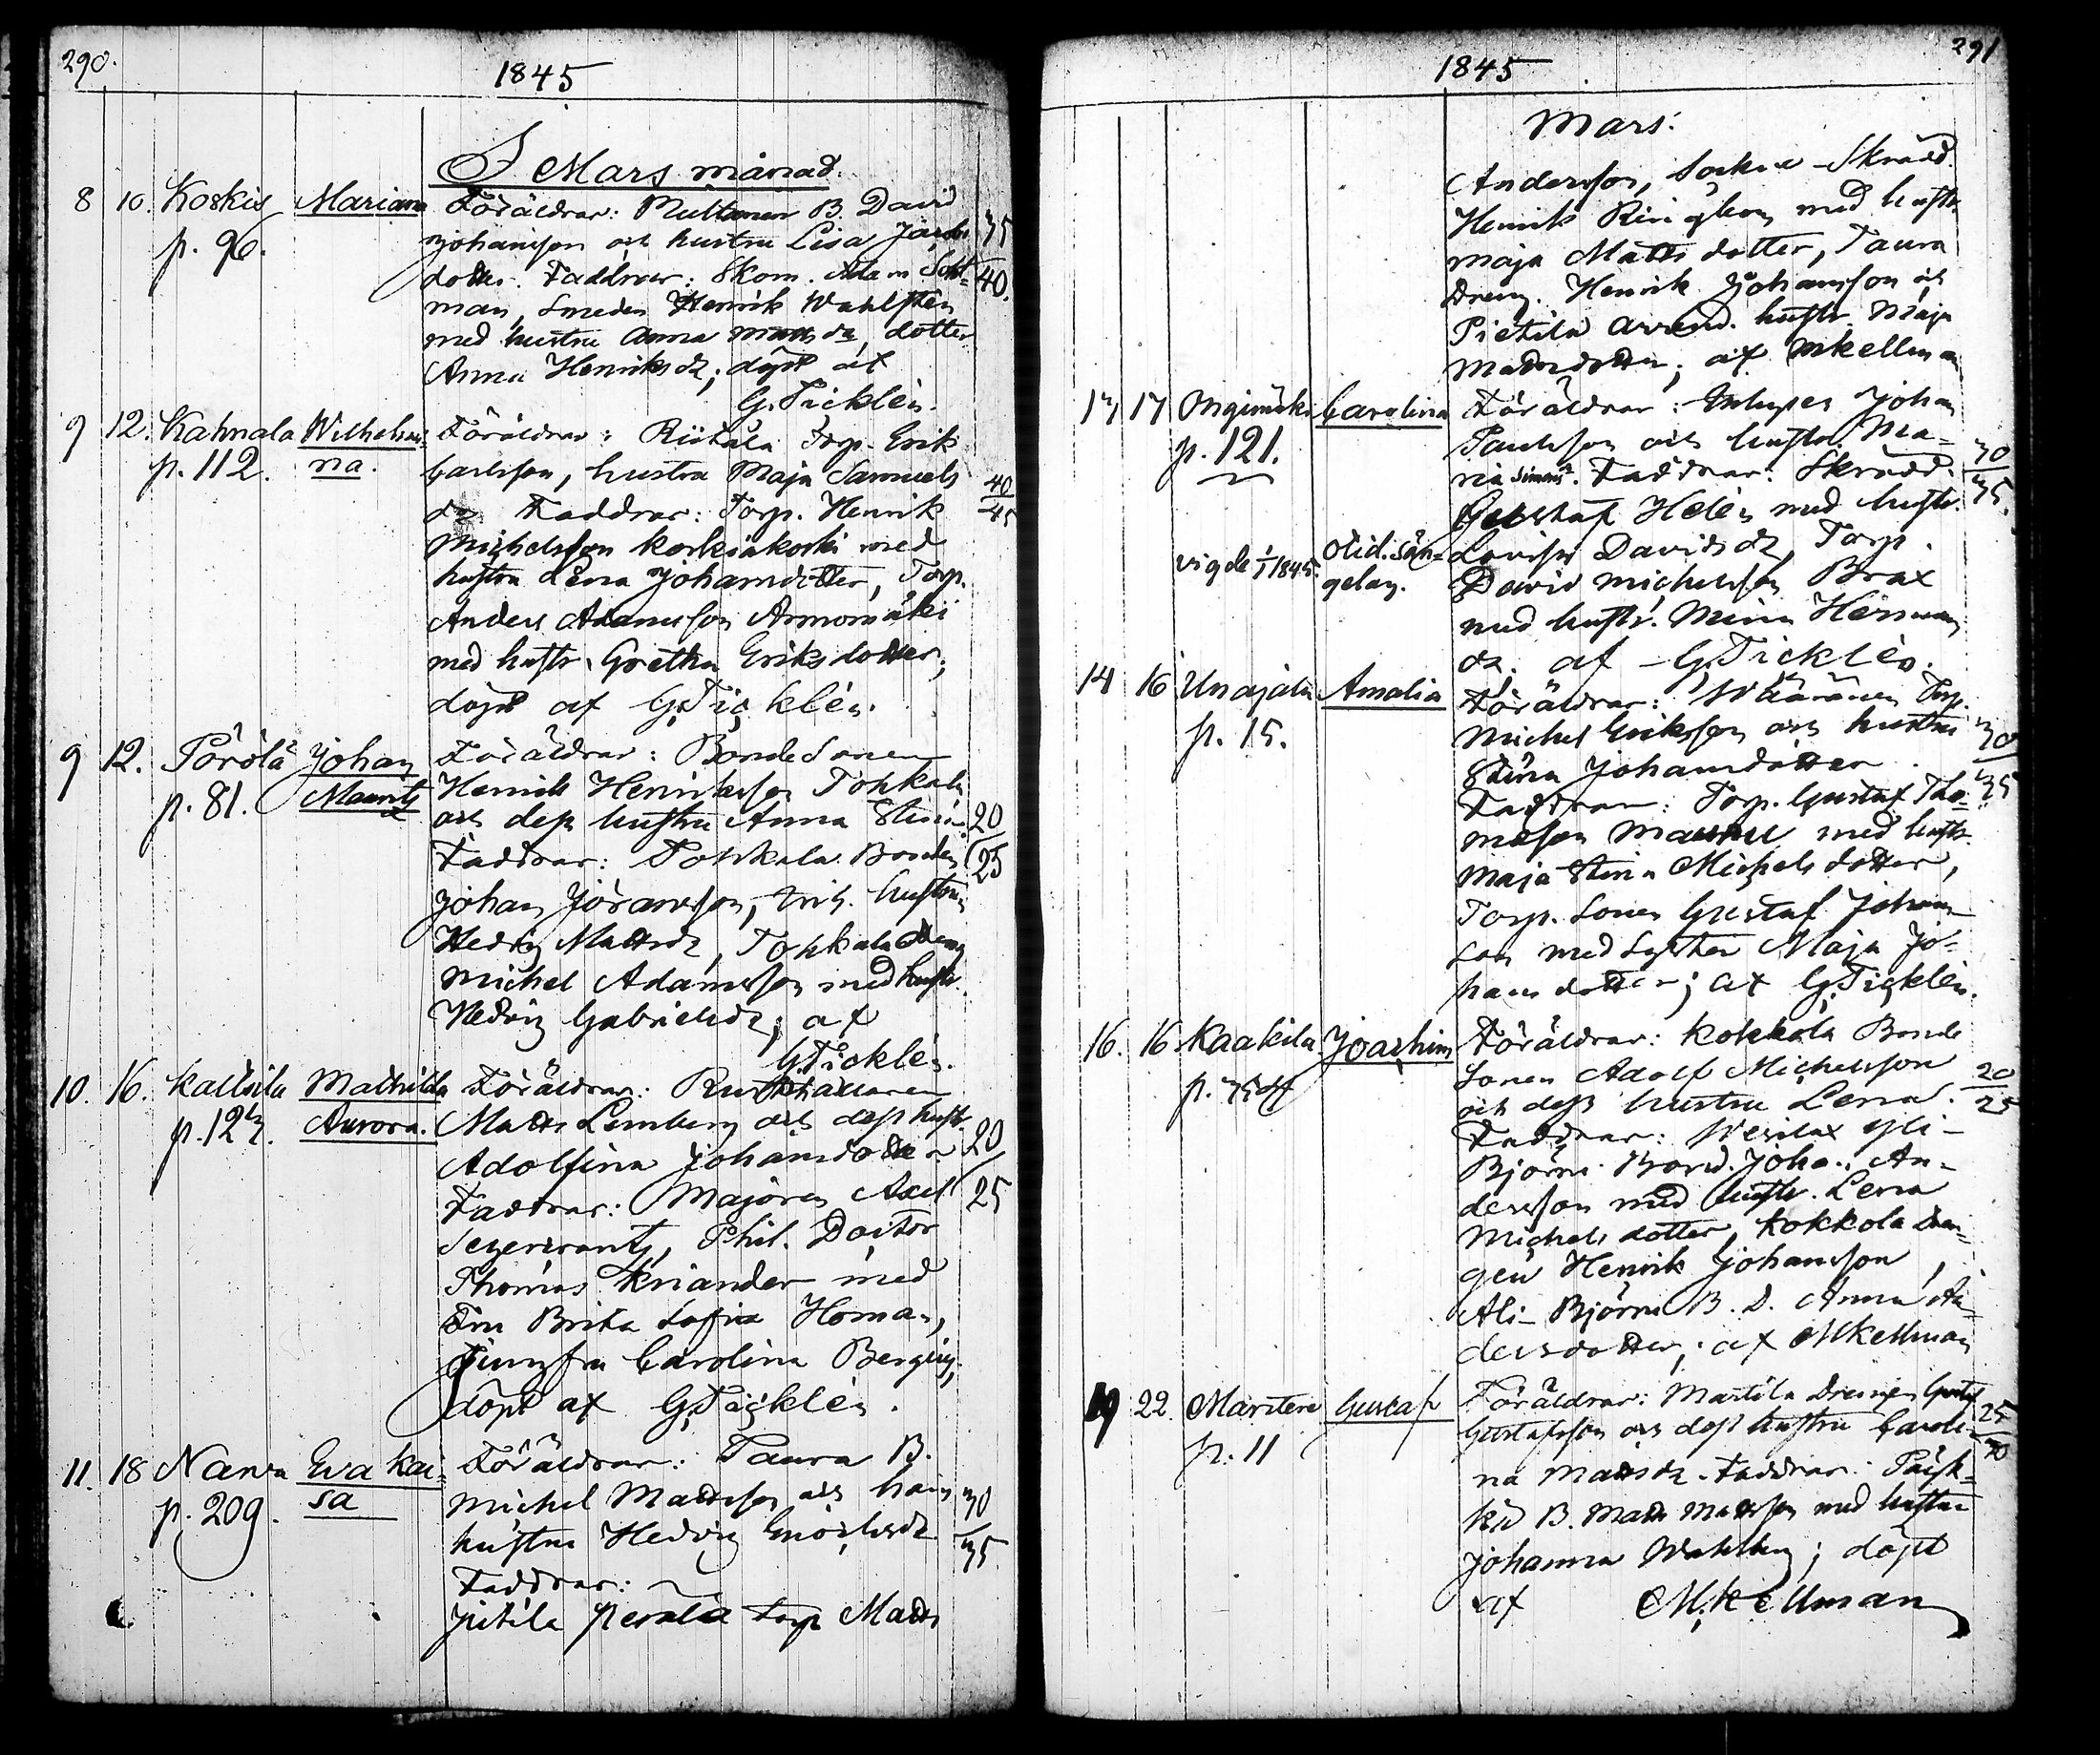 290.
1845
I Mars månad.
8 10. Koskis Mariana Föräldrar: Multaman B. David
p. 96. Johansson och hustru Lisa Jacobs 35
dotter. Faddrar: Skom. Adam 40.
man, Smeden Henrik Wahlsten
med hustru Anna Matts dr, dotter
Anna Henriksdr; döpt af
G. Ticklén.
9 12. Kahnala Wilhelmi- Föräldrar: Riitala Torp. Erik
p. 112. na. Carlsson, hustru Maja Samuels 40
dr Faddrar: Torp. Henrik 45
Michelsson Korkiakoski med
hustru Lena Johansdotter, Torp.
Anders Adamsson Ammomäki
med hustr. Gretha Eriksdotter;
döpt af G. Ticklén.
9 12. Pörölä Johan Föräldrar: Bonde Sonen
p. 81. Mauritz Henrik Henriksson Tohkala
och dess hustru Anna Stina 20
Faddrar: Tohkala Bonden 25
Johan Jöransson, hustru
Hedvig Mattsdr, Tohkala Dreng
Michel Adamsson med hustr.
Hedvig Gabrielsdr; af
G. Ticklén.
10. 16. Kallsila Mathilda Föräldrar: Rusthållaren
p. 123. Aurora. Matts Lemberg och dess hustr.
Adolfina Johansdotter 20
Faddrar: Majoren Axel 25
Segercrantz, Phil. Doctor
Thomas Kriander med
Fru Brita Sofia Homan,
Jungfru Carolina Berg
döpt af G. Ticklén.
11. 18 Nanra Eva Kai- Föräldrar: Taura B.
p. 209. sa Michel Mattsson och hans 30
hustru Hedvig 35
Faddrar:
Jutila Perälä Torp Matts
291
1845
Mars:
Andersson, Socken Skrädd.
Henrik Ringbom med hustr.
Maja Mattsdotter, Taura
Dreng. Henrik Johansson och
Pietilä Arrend. hustr. Maja
Mattsdotter; af MKellman
13 17 Ongimäki Carolina Föräldrar: Inhyses Johan
p. 121. Paulsson och hustr. Ma- 30
ria Simons. Faddrar: Skrädd. 35.
Gustaf Helén med hustr.
vigde 1/1 1845. Otid. sän- Lovisa Davidsdr, Torp.
gelag. David Michelsson Brax
med hustr. Mina Hermans
dr. af G. Ticklén.
14 16 Unajala Amalia Föräldrar: Wääränen Torp.
p. 15. Michel Eriksson och hustru 30
Stina Johansdotter 35
Faddrar: Torp. Gustaf Tho-
masson med hustr.
Maja Stina Michelsdotter,
Torp. Sonen Gustaf Johans
son med Syster Maja Jo-
hansdotter; af G. Ticklén.
16. 16 Kaakila Joachim Föräldrar: Kokkola Bonde
p. 75 Sonen Adolf Michelsson 20
och dess hustru Lena. 25
Faddrar: Yli-
Björni Bond. Joha. An-
dersson med hustr. Lena
Michelsdotter, Kokkola Dren-
gen Henrik Johansson,
Ali-Björni B. D. Anna An-
dersdotter; af MKellman
19 22 Marttere Gustaf Föräldrar: Martila Drengen Gustaf
p. 11 Gustafsson och dess hustru Caroli- 25
na Mattsdr. Faddrar: Päist- 30
kiö B. Matts Mattsson med hustru
Johanna Wahlberg; döpt
af M. Kellman